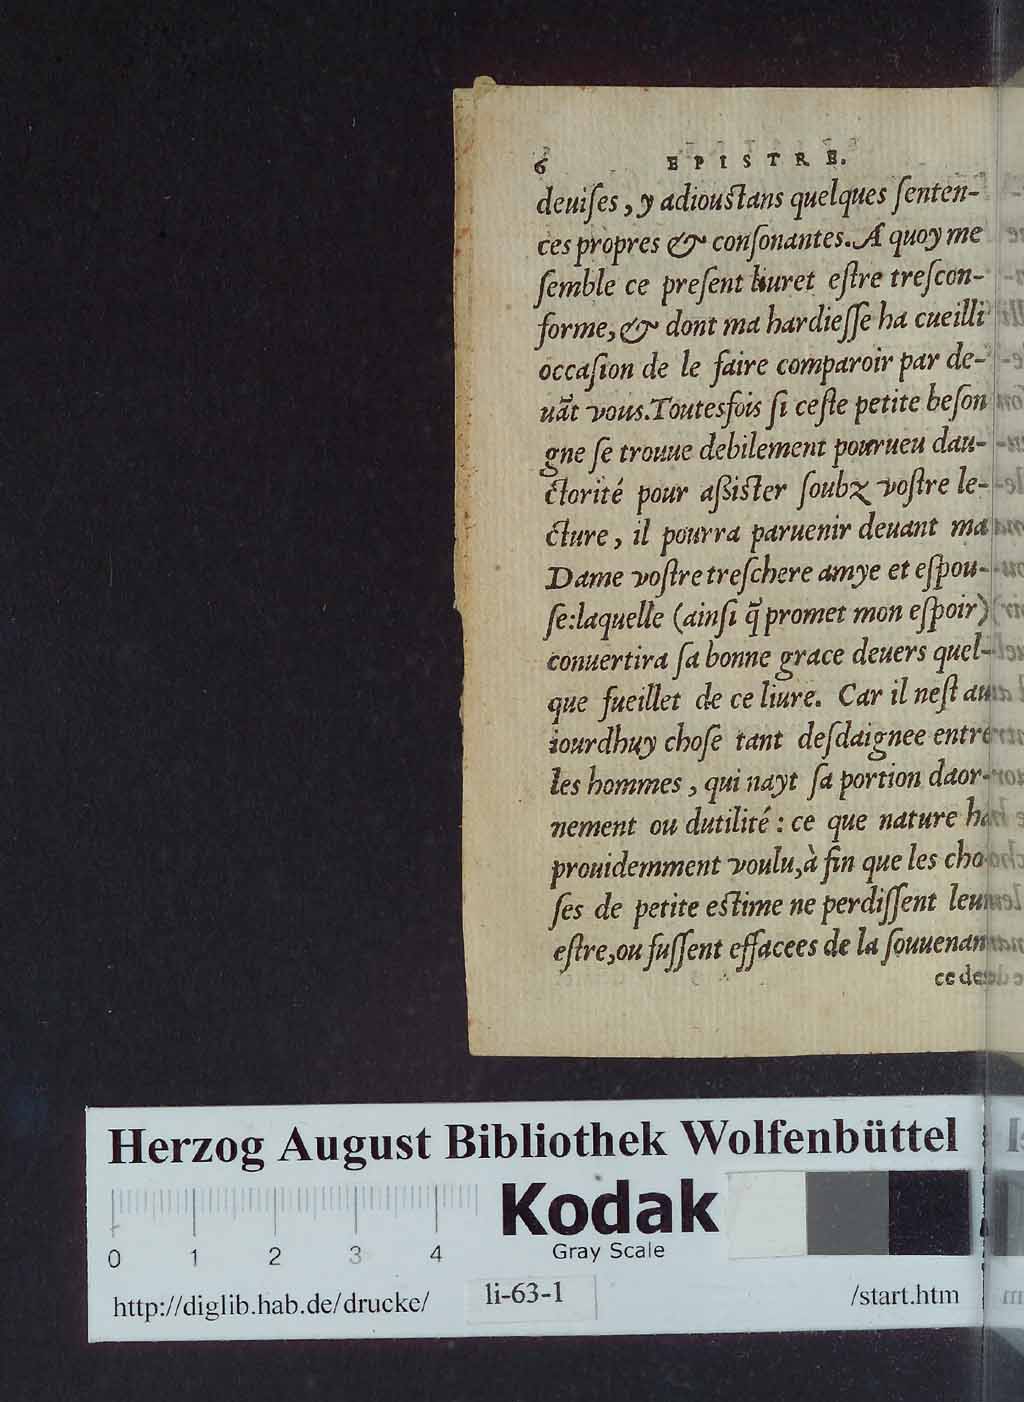 6 EPISTRE.
deuiſes, y adiouſtans quelques ſenten-
ces propres & conſonantes. A quoy me
ſemble ce preſent liuret eſtre treſcon-
forme, & dont ma hardieſſe ha cueilli
occaſion de le faire comparoir par de-
uãt vous. Toutesfois ſi ceſte petite beſon
gne ſe trouue debilement pourueu dau-
ctorité pour aßiſter ſoubz voſtre le-
cture, il pourra paruenir deuant ma
Dame voſtre treſchere amye et eſpou-
ſe: laquelle (ainſi q̃ promet mon eſpoir)
conuertira ſa bonne grace deuers quel-
que fueillet de ce liure. Car il neſt au
iourdhuy choſe tant deſdaignee entre
les hommes, qui nayt ſa portion daor-
nement ou dutilité: ce que nature ha
prouidemment voulu, à fin que les cho
ſes de petite eſtime ne perdiſſent leur
eſtre, ou fuſſent effacees de la ſouuenan
ce de
Herzog August Bibliothek Wolfenbüttel
Kodak
Gray Scale
0 1 2 3 4
http://diglib.hab.de/drucke/ li-63-1 /start.htm